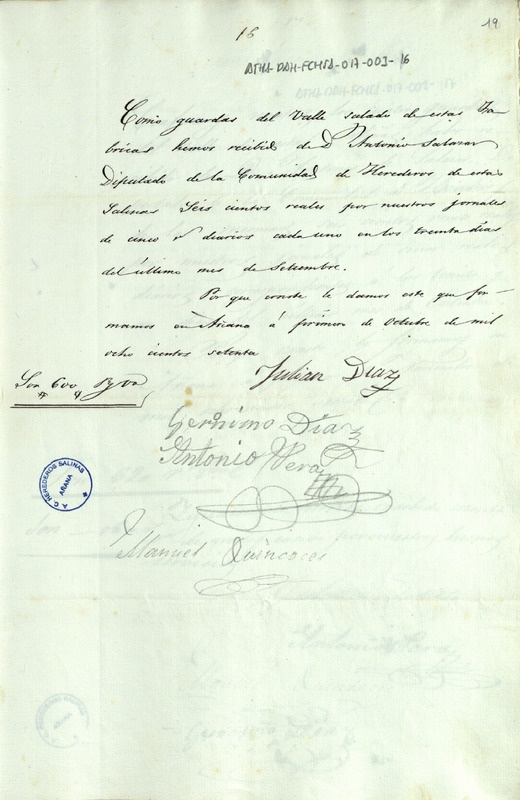 16
19
ATHA-DAH-FCHSA-017-001-16
Como guardas del Valle salado de estas Fa-
bricas hemos recibido de Dⁿ Antonio Salazar
Diputado de la Comunidad de Herederos de estas
Salinas Seis cientos reales por nuestros jornales
de cinco rˢ diarios cada uno en los treinta dias
del último mes de Setiembre.
Por que conste le damos este que fir-
mamos en Añana á primero de Octubre de mil
ocho cientos setenta
Son 600 Rˢ vn
Julian Diaz
Gerónimo Díaz
Antonio Vera
Manuel Quincoces
A.C. HEREDEROS SALINAS
AÑANA